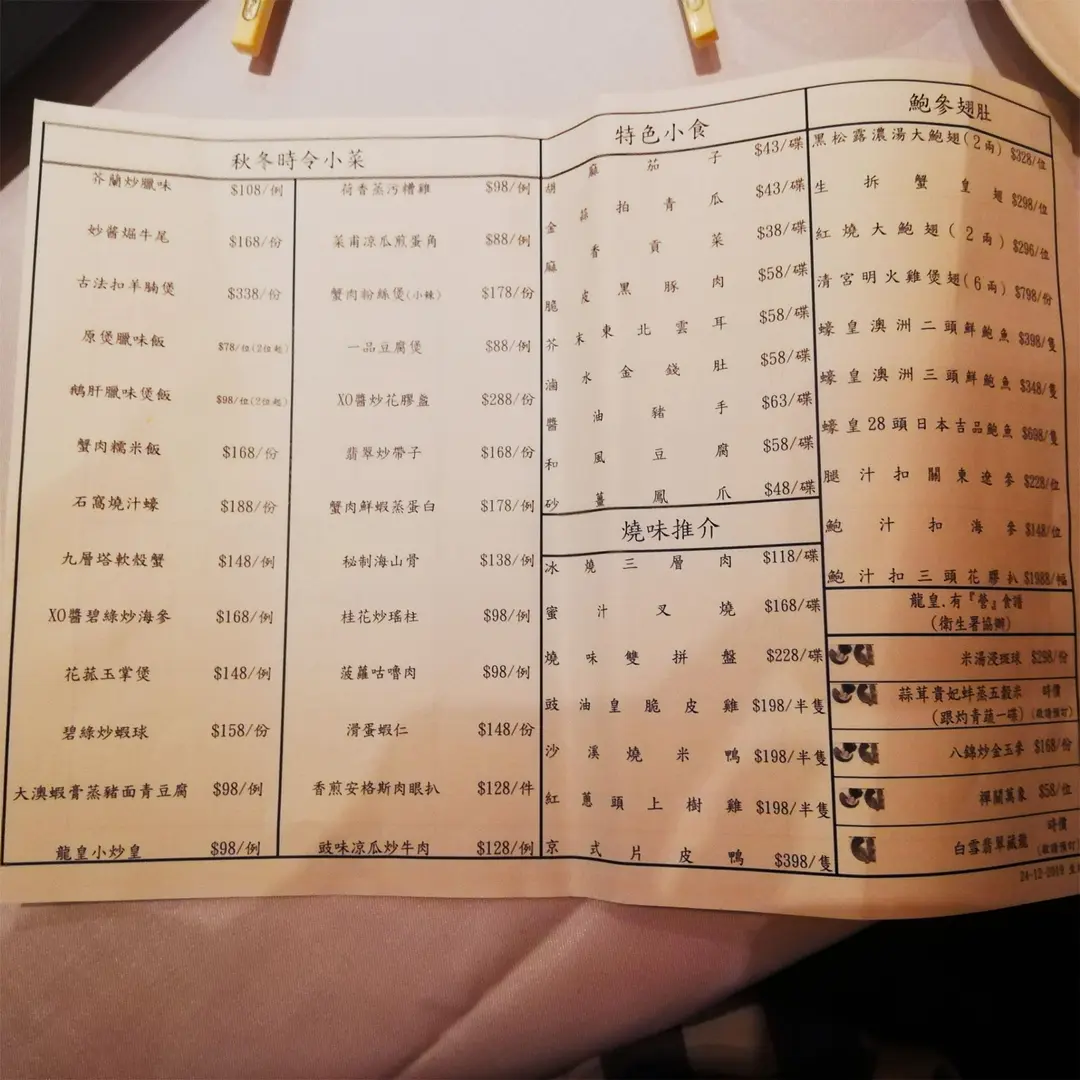 秋冬時令小菜
芥蘭炒臘味 $108/例
妙醬焗牛尾 $168/份
古法扣羊腩煲 $338/份
原煲臘味飯 $78/位(2位起)
鵝肝臘味煲飯 $98/位(2位起)
蟹肉糯米飯 $168/份
石窩燒汁蠔 $188/份
九層塔軟殼蟹 $148/例
XO醬碧綠炒海參 $168/例
花菇玉掌煲 $148/例
碧綠炒蝦球 $158/份
大澳蝦膏蒸豬面青豆腐 $98/例
龍皇小炒皇 $98/例
荷香蒸污糟雞 $98/例
菜甫凉瓜煎蛋角 $88/例
蟹肉粉絲煲(小辣) $178/份
一品豆腐煲 $88/例
XO醬炒花膠盞 $288/份
翡翠炒帶子 $168/份
蟹肉鮮蝦蒸蛋白 $178/例
秘制海山骨 $138/例
桂花炒瑤柱 $98/例
菠蘿咕嚕肉 $98/例
滑蛋蝦仁 $148/份
香煎安格斯肉眼扒 $128/件
豉味凉瓜炒牛肉 $128/例
特色小食
胡麻茄子 $43/碟
金蒜拍青瓜 $43/碟
麻香貢菜 $38/碟
脆皮黑豚肉 $58/碟
芥末東北雲耳 $58/碟
滷水金錢肚 $58/碟
醬油豬手 $63/碟
和風豆腐 $58/碟
砂薑鳳爪 $48/碟
燒味推介
冰燒三層肉 $118/碟
蜜汁叉燒 $168/碟
燒味雙拼盤 $228/碟
豉油皇脆皮雞 $198/半隻
沙溪燒米鴨 $198/半隻
紅蔥頭上樹雞 $198/半隻
京式片皮鴨 $398/隻
鮑參翅肚
黑松露濃湯大鮑翅(2兩) $328/位
生拆蟹皇翅 $298/位
紅燒大鮑翅(2兩) $296/位
清宮明火雞煲翅(6兩) $798/份
蠔皇澳洲二頭鮮鮑魚 $398/隻
蠔皇澳洲三頭鮮鮑魚 $348/隻
蠔皇28頭日本吉品鮑魚 $698/隻
腿汁扣關東遼參 $228/位
鮑汁扣海參 $148/位
鮑汁扣三頭花膠扒 $1988/幅
龍皇.有『營』食譜
(衛生署協辦)
米湯浸斑球 $298/份
蒜茸貴妃蚌蒸五穀米 時價
(跟灼青蔬一碟) (敬請預訂)
八錦炒金玉參 $168/份
禪關萬象 $58/位
時價
白雪翡翠藏龍 (敬請預訂)
24-12-2019